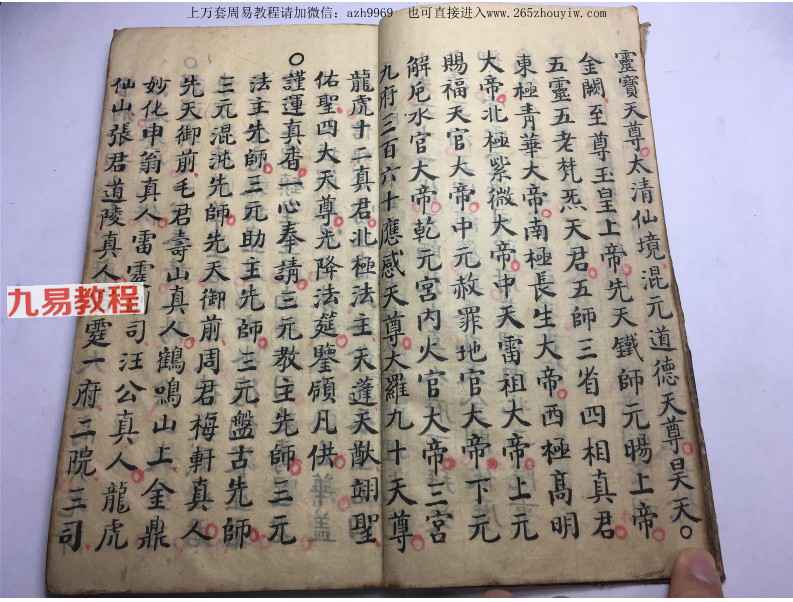 上万套周易教程请加微信：azh9969 也可直接进入www.265zhouyiw.com
靈寶天尊太清仙境混元道德天尊昊天
金闕至尊玉皇上帝先天鐵師元暘上帝
五靈五老梵炁天君五師三省四相真君
東極青華大帝南極長生大帝西極高明
大帝北極紫微大帝中天雷祖大帝上元
賜福天官大帝中元赦罪地官大帝下元
解厄水官大帝乾元宮內火官大帝三宮
九府三百六十應感天尊大羅九十天尊
龍虎十二真君北極法主天蓬天猷翊聖
佑聖四大天尊光降法筵鑒領凡供
謹運真香一心奉請三元教主先師三元
法主先師三元助主先師三元盤古先師
三元混沌先師先天御前周君梅軒真人
先天御前毛君壽山真人鶴鳴山上金鼎
妙化申翁真人雷霆司汪公真人龍虎
仙山張君道陵真人霆一府二院三司
九易教程